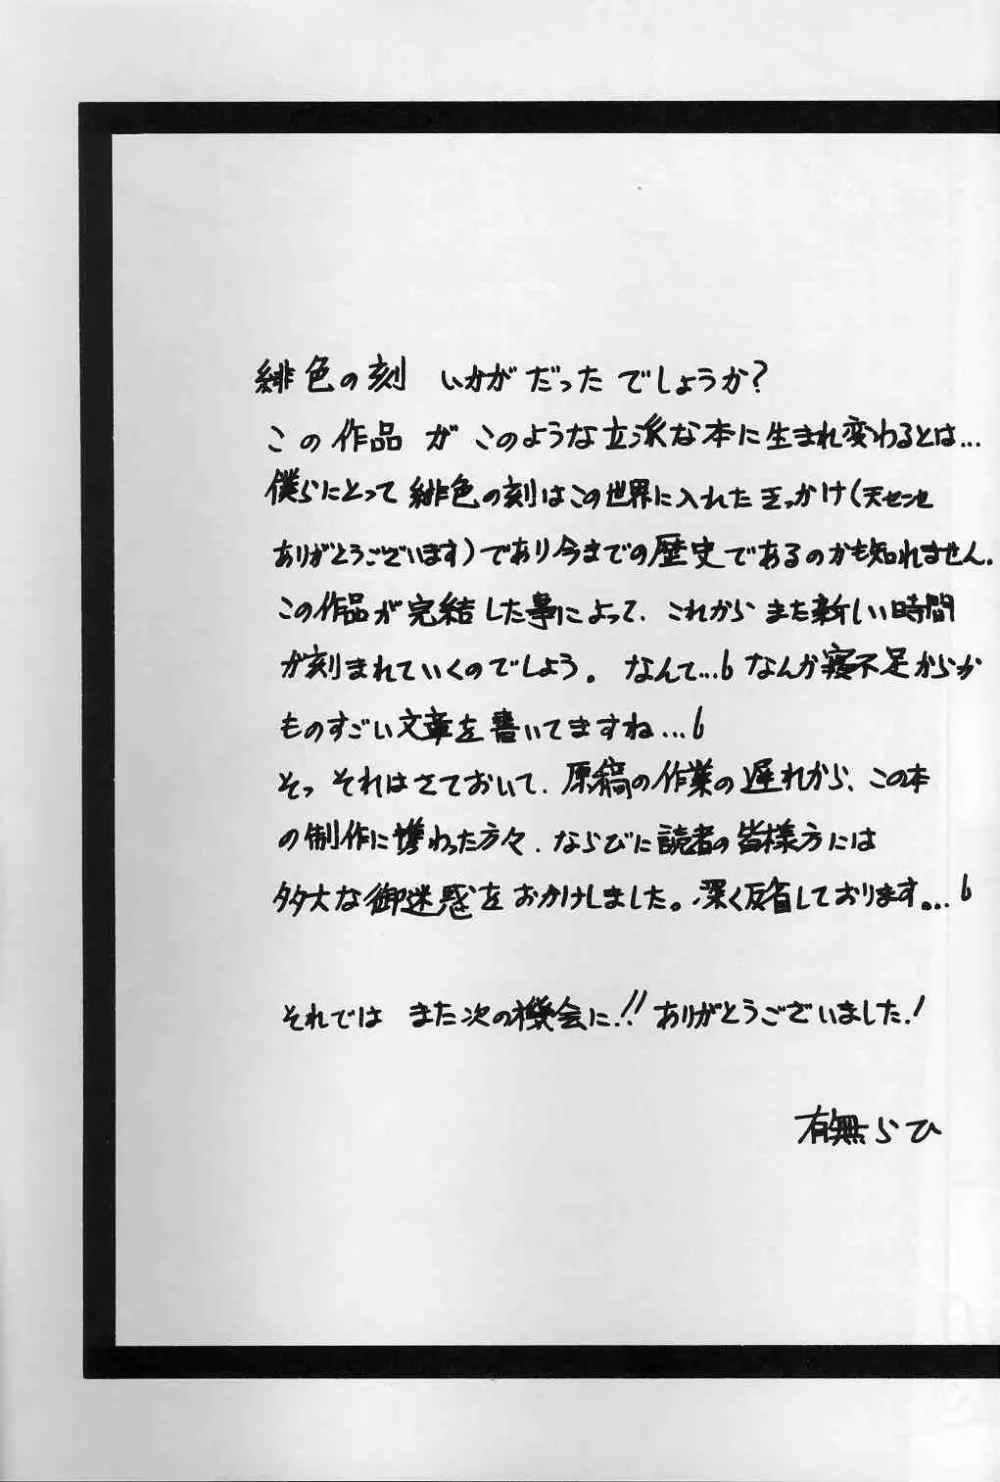 緋色の刻 いかがだったでしょうか?
この作品が このような立派な本に生まれ変わるとは…
僕らにとって 緋色の刻はこの世界に入れたきっかけ(天センセ
ありがとうございます)であり今までの歴史であるのかも知れません.
この作品が完結した事によって、これからまた新しい時間
が刻まれていくのでしょう。なんて…6 なんか寝不足からか
ものすごい文章を書いてますね…6
そっ それはさておいて、原稿の作業の遅れから、この本
の制作に携わった方々、ならびに読者の皆様方には
多大な御迷惑をおかけしました。深く反省しております。…6
それでは また次の機会に!! ありがとうございました!
有無らひ